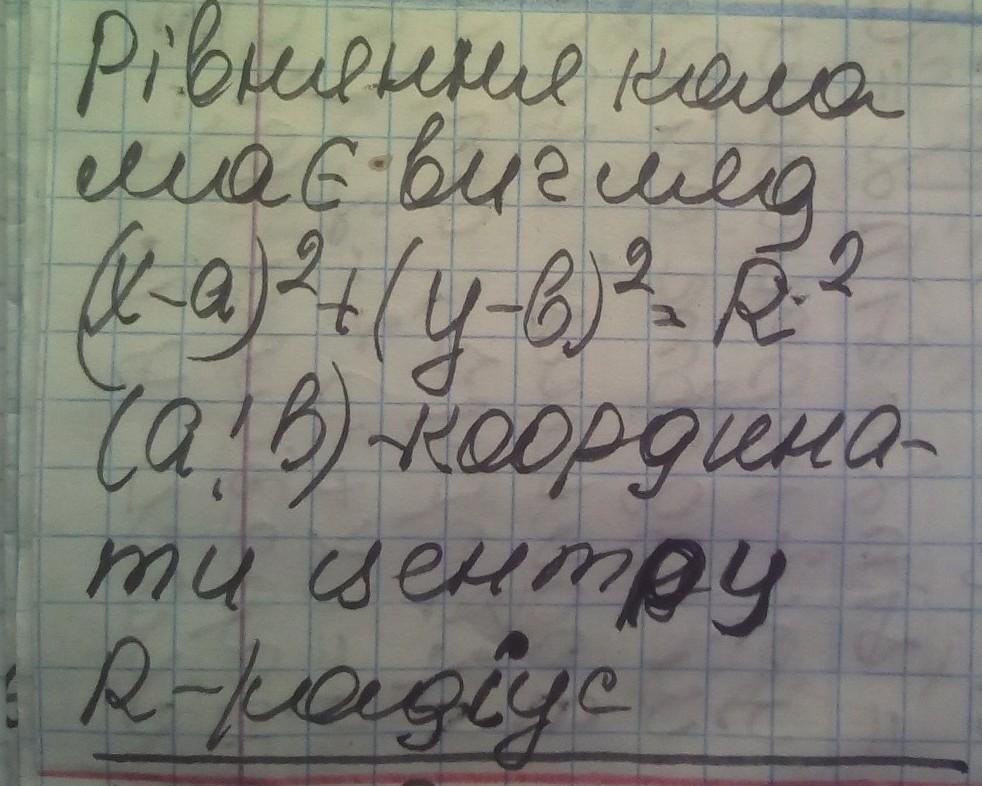 Рівняння кола
має вигляд
(x-a)²+(y-b)²=R²
(a;b)-координа-
ти центру
R-радіус